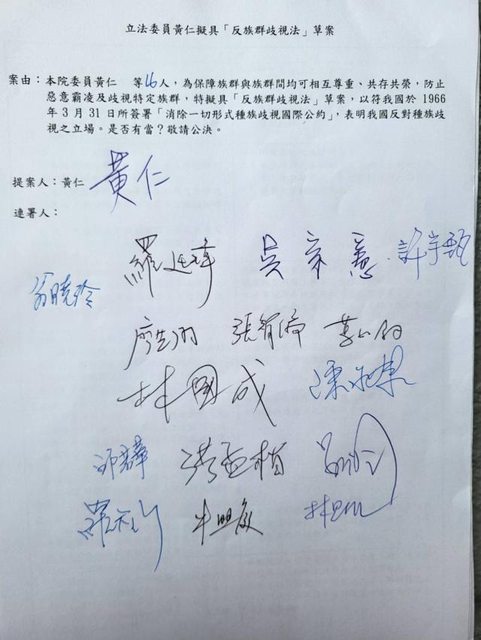 立法委員黃仁擬具「反族群歧視法」草案
案由：本院委員黃仁　等16人，為保障族群與族群間均可相互尊重、共存共榮，防止
惡意霸凌及歧視特定族群，特擬具「反族群歧視法」草案，以符我國於 1966
年 3 月 31 日所簽署「消除一切形式種族歧視國際公約」，表明我國反對種族歧
視之立場。是否有當？敬請公決。
提案人：黃仁 黃仁
連署人：
羅廷瑋 吳宗憲 許宇甄
翁曉玲
廖先翔 張智倫
林國成 陳永康
邱若華 洪孟楷
羅智強 牛煦庭 林思銘